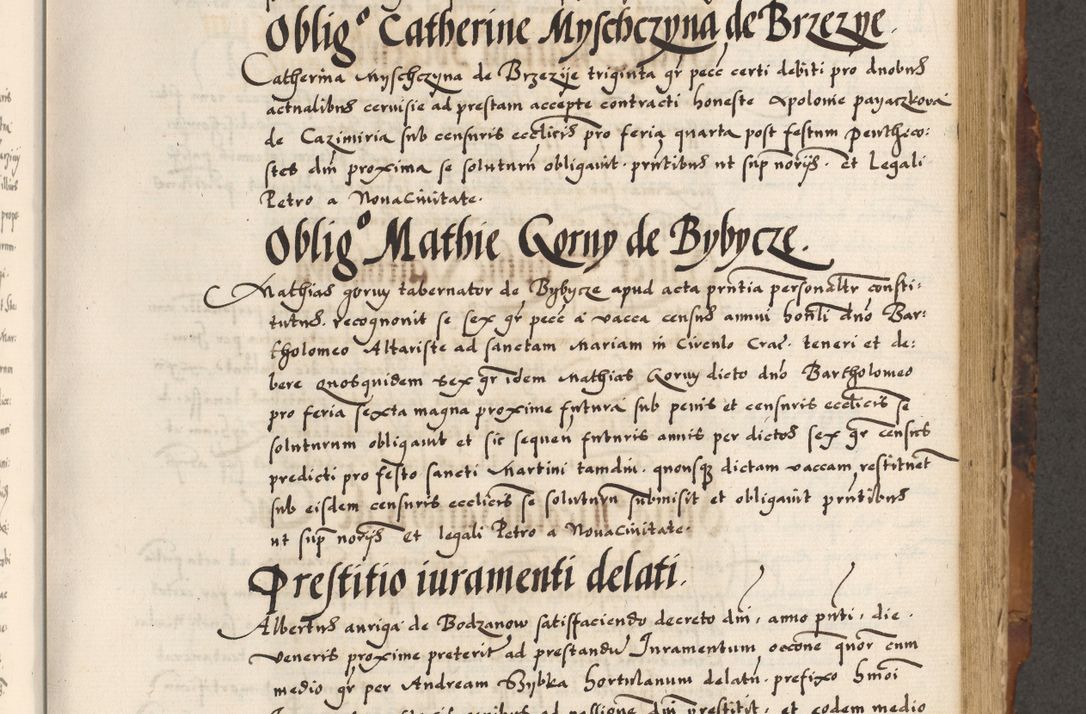 Obligo Catherine Myschczyna de Brzezye.
Catherina Myschczyna de Brzezije triginta gr pecc certi debiti pro duobus
actualibus cervisie ad prestam accepte contracti honeste Apolonie payaczkova
de Cazimiria sub censuris ecclicis pro feria quarta post festum Penthico:
stes dni proxima se soluturu obligavit. pntibus ut sup norijs. Et Legali
Petro a Novacivitate.
Obligo Mathie Gorny de Bybycze.
Mathias gorny tabernator de Bybycze apud acta pntia personaltr consti:
tutus. recognovit se sex gr pecc a vacca census annui honli dno Bar:
tholomeo Altariste ad sanctam Mariam in Circulo Crac. teneri et de:
bere quosquidem sex gr idem Mathias Gorny dicto dno Bartholomeo
pro feria sexta magna proxime futura sub penis et censuris ecclicis se
soluturum obligavit et sic sequen futuris annis per dictos sex gr census
predicti pro festo sancti Martini tamdiu. quousq dictam vaccam restituet
sub eisdem censuris ecclicis se soluturu submisit et obligavit pntibus
ut sup norijs Et legali Petro a Novacivitate.
Prestitio iuramenti delati.
Albertus auriga de Bodzanow satisfaciendo decreto dni, anno pnti, die.
veneris proxime preterit ad prestandu Iuramentum occone quor cum
medio gr per Andream Szybka hortulanum delatu. prefixo hmoi
ad passione dni prestitit, et eodem medio